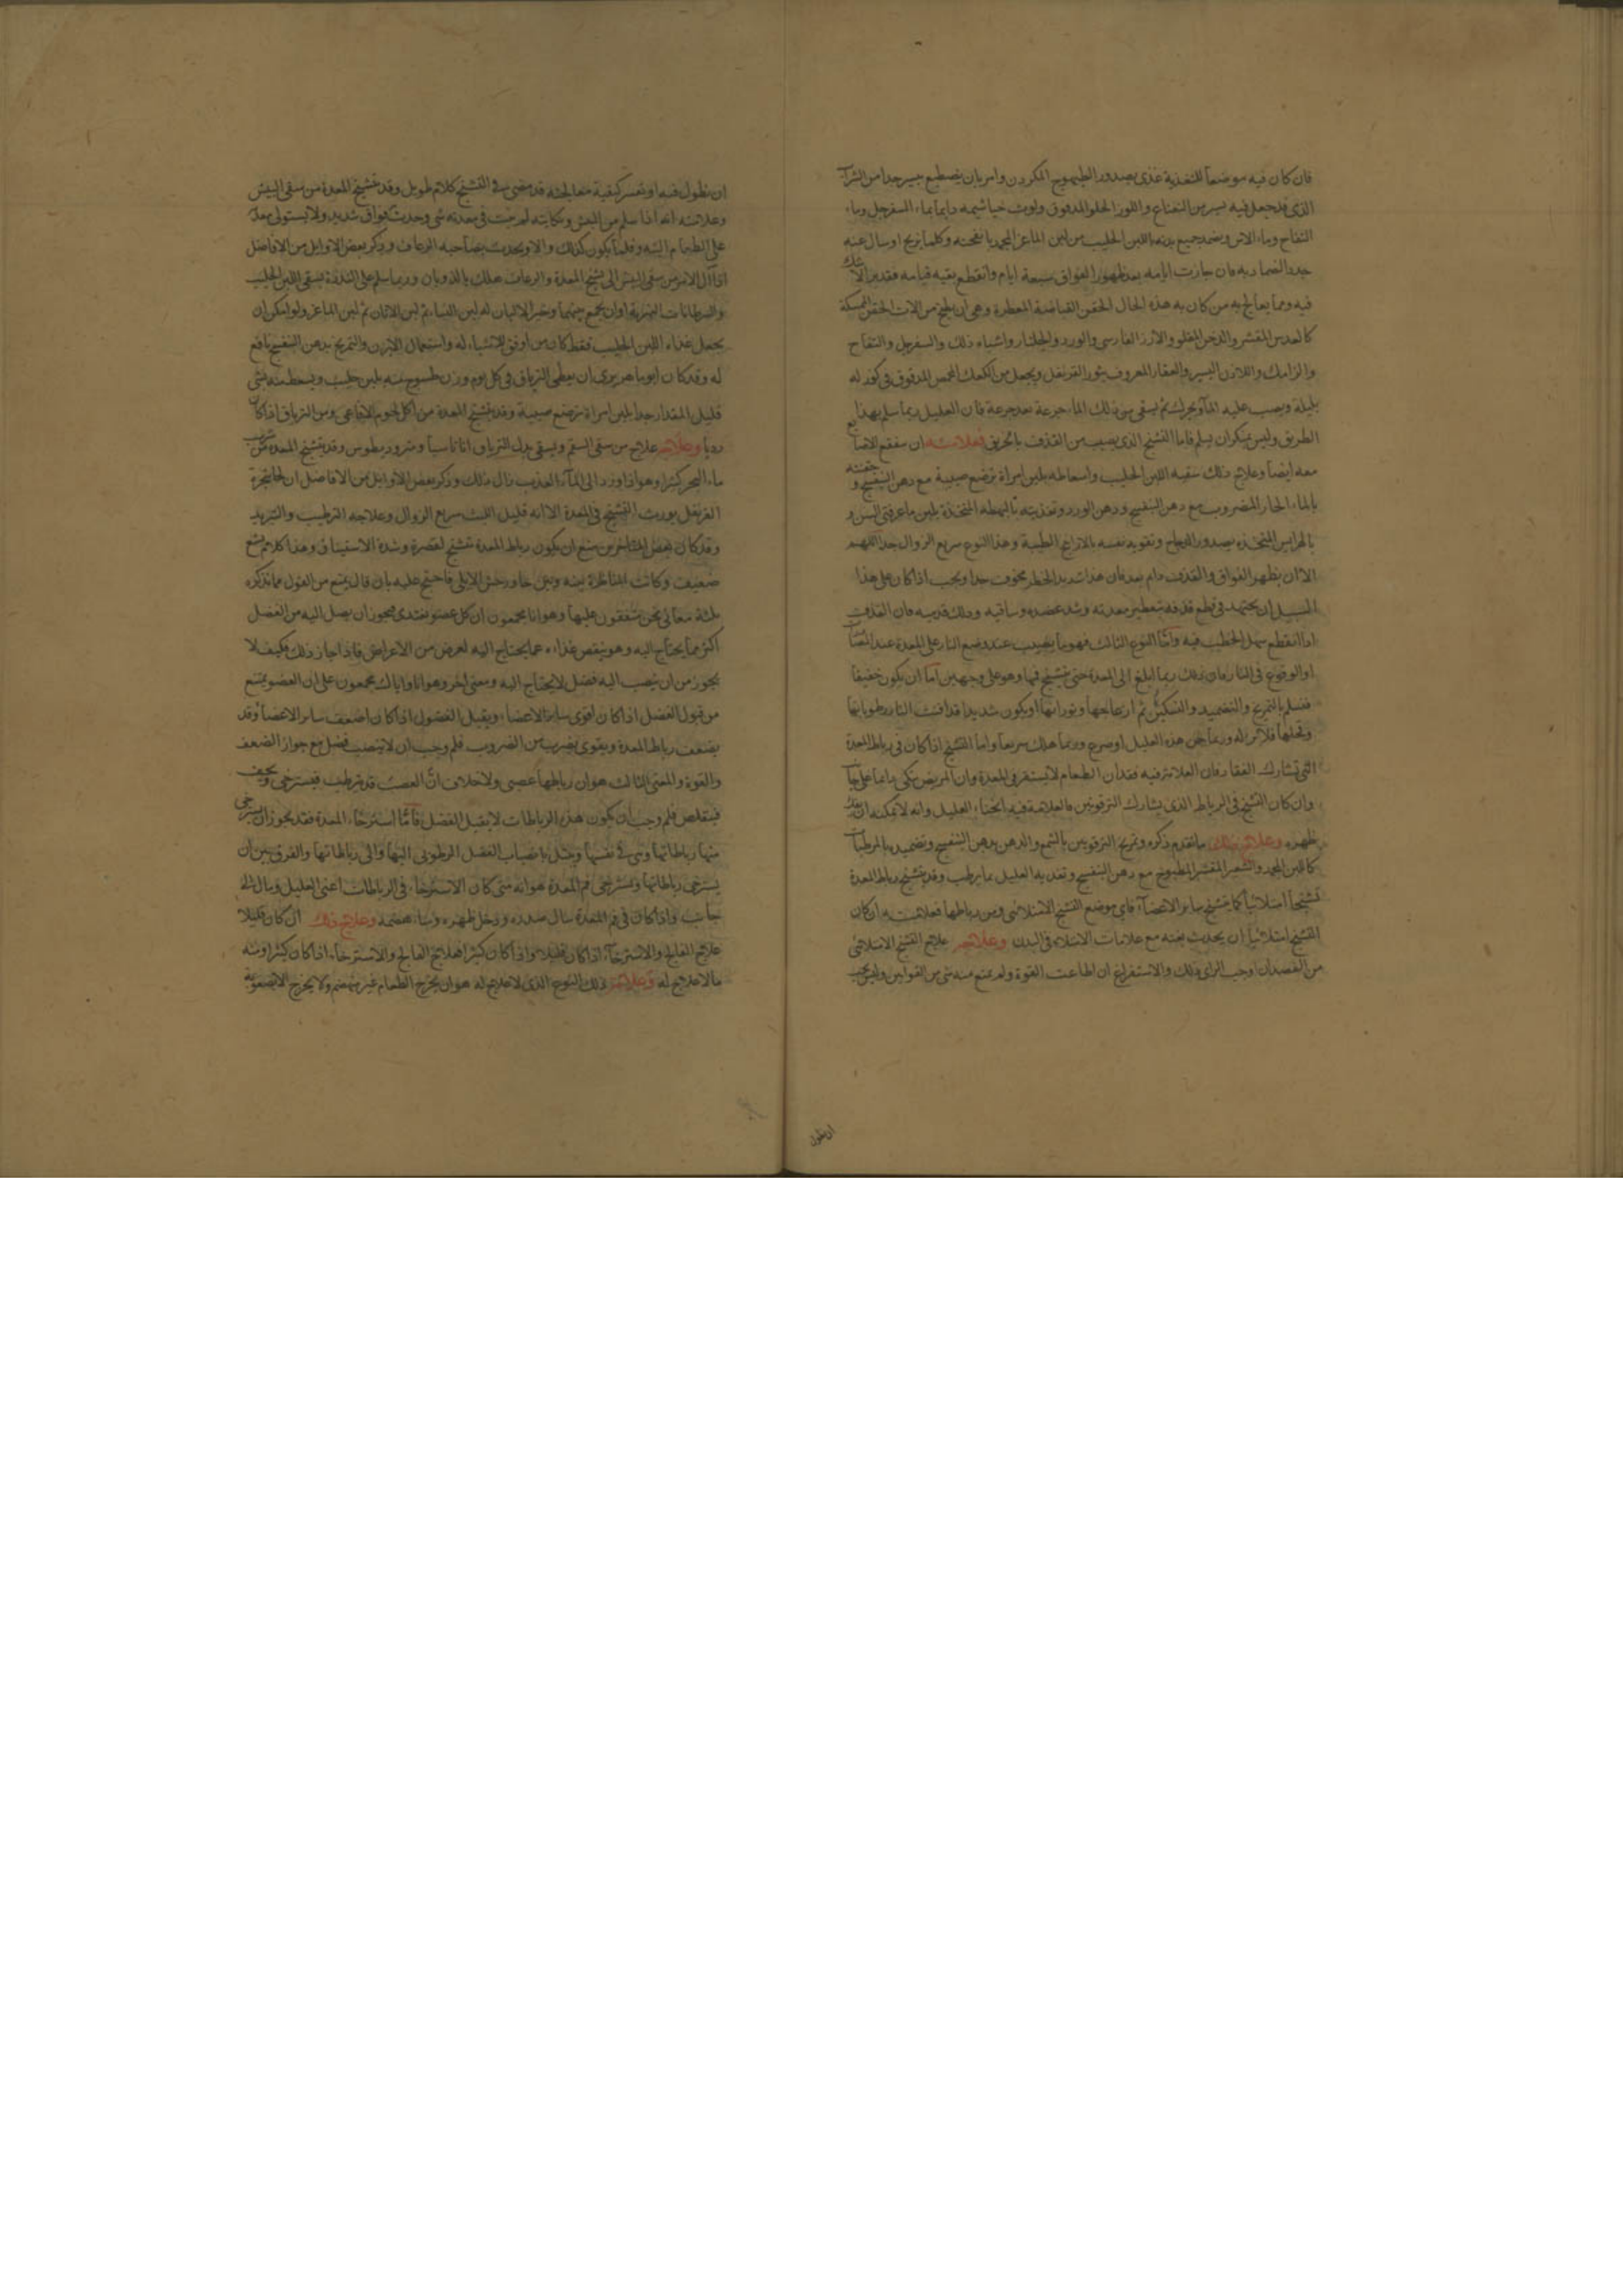 فان كان فيه موضعا للتغذية غذى بصدور الطيهوج المكردن وامر بان يصطبغ بيسير جدا من الشراب
الذى قد جعل فيه يسير من النعناع واللوز الحلو المدقوق ولوث خياشيمه دايما بماء السفرجل وماء
التفاح وماء الاس ويضمد جميع بدنه باللبن الحليب من لبن الماعز المجمد بانفحته وكلما نزح او سال عنه
جدد الضماد به فان جازت ايامه بعد ظهور الفواق سبعة ايام وانقطع بقيه قيامه فقد برا لا شك
فيه ومما يعالج به من كان به هذه الحال الحقن القابضة المعطرة وهى ان يطبخ من الات الحقن الممسكة
كالعدس المقشر والدخن المقلو والارز الفارسى والورد والجلنار واشباه ذلك والسفرجل والتفاح
والرامك واللاذن اليسير والعقار المعروف بثور القرنفل ويجعل من الكعك المحمص المدقوق فى كوز له
بليلة ويصب عليه الماء ويحرك ثم يسقى من ذلك الماء جرعة بعد جرعة فان العليل ربما سلم بهذا
الطريق وليس ينكر ان يسلم فاما التشنج الذى يصيب من القذف بالخريق فعلامته ان
معه ايضا وعلاج ذلك سقيه اللبن الحليب واسعاطه بلبن امراة ترضع صبية مع دهن البنفسج وحقنه
بالماء الحار المضروب مع دهن البنفسج ودهن الورد وتغذيته بالبهطه المتخذة بلبن ماعز فتى السن و
بالهرايس المتخذه بصدور الدجاج وتقويه نفسه بالارايح الطيبة وهذا النوع سريع الزوال جدا اللهم
الا ان يظهر الفواق والقذف دام بعد فان هذا شديد الخطر مخوف جدا ويجب اذا كان على هذا
السبيل ان يجتهد فى قطع قذفه بتعطير معدته وشد عضده وساقيه ودلك قدميه فان القذف
اذا انقطع سهل الخطب فيه واما النوع الثالث فهو ما يصيب عند وضع النار على المعدة عند
او الوقوع فى النار فان ذلك ربما ابلغ الى المعدة حتى يتشنج فمها وهو على وجهين اما ان يكون خفيفا
فيسلم بالتمريخ والتضميد والتسكين ثم ارتجاعها وثورانها او يكون شديدا قد افنت النار رطوباتها
وتحللها فلا برء له وربما جن هذه العليل او صرع وربما هلك سريعا واما التشنج اذا كان فى رباط المعدة
التى تشارك الفقار فان العلامة فيه فقدان الطعام لا يستقر فى المعدة وان المريض يتكى دايما على جانب
وان كان التشنج فى الرباط الذى يشارك الترقوتين فالعلامة فيه انحناء العليل وانه لا يمكنه ان يمد
ظهره وعلاج ذلك ما تقدم ذكره وتمريخ الترقوتين بالشمع والدهن بدهن البنفسج وتضميده بالمرطبات
كاللبن المجمد والشعير المقشر المطبوخ مع دهن البنفسج وتغذية العليل بما يرطب وقد يتشنج رباط المعدة
تشنجا امتلائيا كما يتشنج ساير الاعضاء فاى موضع التشنج الامتلائى ومن رباطها فعلامته ان كان
التشنج امتلائيا ان يحدث بغته مع علامات الامتلاء فى البدن وعلاجه علاج التشنج الامتلائى
من الفصد ان اوجب الراى ذلك والاستفراغ ان اطاعت القوة ولم يمنع منه شى من القوانين وليس يجب
ان نطول
ان نطول فيه او نفسر كيفية معالجته قد مضى فى التشنج كلام طويل وقد يتشنج المعدة من سقى البيش
وعلامته انه اذا سلم من البيش ونكايته لم يثبت فى معدته شى وحدث فواق شديد ولا يستولى معدته
على الطعام البته وقلما يكون كذلك والا ويحدث بصاحبه الرعاف وذكر بعض الاوايل من الافاضل
اذا آل الامر من سقى البيش الى تشنج المعدة والرعاف هلك بالذوبان وربما سلم على الندرة بسقى اللبن الحليب
والسرطانات النهرية او ان يجمع بينهما وخير الالبان له لبن النساء ثم لبن الاتان ثم لبن الماعز ولو امكن ان
يجعل غذاء اللبن الحليب فقط كان من اوفق الاشياء له واستعمال الابزن والتمريخ بدهن البنفسج نافع
له وقد كان ابو ماهر يرى ان يعطى الترياق فى كل يوم وزن طسوج منه بلبن حليب ويسعط منه بشى
قليل المقدار جدا بلبن امراة ترضع صبية وقد يتشنج المعدة من اكل لحوم الافاعى ومن الترياق اذا كان
رديا وعلاجه علاج من سقى السم ويسقى بدل الترياق اثاناسيا ومثروديطوس وقد يتشنج المعدة من شرب
ماء البحر كثيرا وهو اذا ورد الى الماء العذب زال ذلك وذكر بعض الاوايل من الافاضل ان
القرنفل يورث التشنج فى المعدة الا انه قليل اللبث سريع الزوال وعلاجه الترطيب والتبريد
وقد كان بعض المتاخرين يمنع ان يكون رباط المعدة تتشنج لقصرة وشدة الاستيثاق وهذا كلام
ضعيف وكانت المناظرة بينه وبين خاورخش الايلى فاحتج عليه بان قال يمنع من القول مما تذكره
ثلثة معانى نحن متفقون عليها وهو انا مجمعون ان كل عضو يغتدى فيجوز ان يصل اليه من الفضل
اكثر مما يحتاج اليه وهو ينقص غذاءه عما يحتاج اليه لعرض من الاعراض فاذا جاز ذلك فكيف لا
يجوز من ان ينصب اليه فضل لا يحتاج اليه ومعنى اخر وهو انا واياك مجمعون على ان العضو يمتنع
من قبول الفضل اذا كان اقوى ساير الاعضاء ويقبل الفضول اذا كان اضعف ساير الاعضاء وقد
يضعف رباط المعدة ويقوى بضرب من الضروب فلم وجب ان لا ينصب فضل مع جواز الضعف
والقوة والمعنى الثالث هو ان رباطها عصبى ولا خلاف ان العصب قد يترطب فيسترخى ويجف
فيتقلص فلم وجب ان يكون هذه الرباطات لا يقبل الفضل فاما استرخاء المعدة فقد يجوز ان يسترخى
منها رباطاتها وهى فى نفسها ويبتل بانصباب الفضل الرطوبى اليها والى رباطاتها والفرق بين ان
يسترخى رباطاتها ويسترخى فم المعدة هو انه متى كان الاسترخاء فى الرباطات اعنى العليل ومال الى
جانب واذا كان فى فم المعدة سال صدره ودخل ظهره وساء هضمه وعلاج ذلك ان كان قليلا
علاج الفالج والاسترخاء اذا كان قليلا واذا كان كثيرا فعلاج الفالج والاسترخاء اذا كان كثيرا ومنه
ما لا علاج له وعلامة ذلك النوع الذى لا علاج له هو ان يخرج الطعام غير منهضم ولا يخرج الا بصعوبة